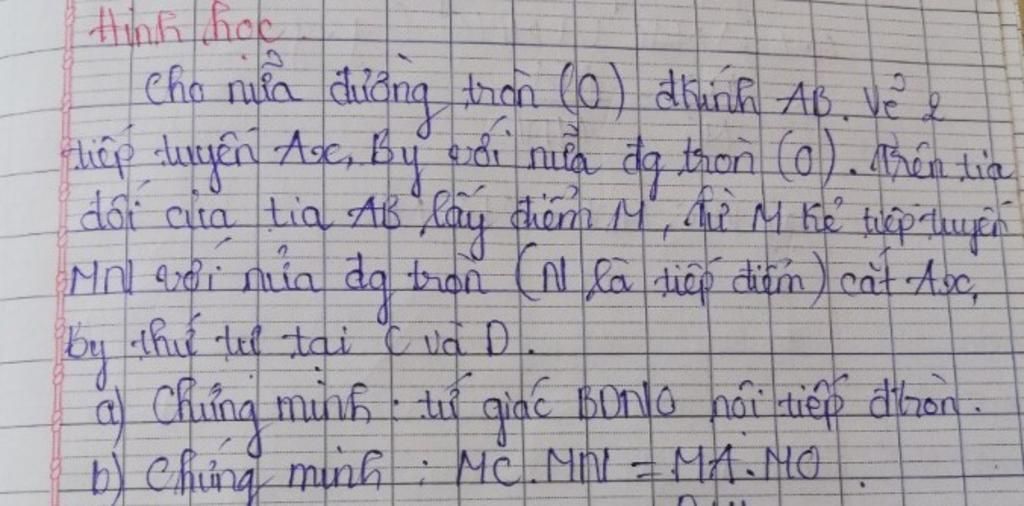 Hình học
Cho nửa đường tròn (O) đkính AB. Vẽ 2
tiếp tuyến Ax, By với nửa đg tròn (O). Trên tia
đối của tia AB lấy điểm M, từ M kẻ tiếp tuyến
MN với nửa đg tròn (N là tiếp điểm) cắt Ax,
by thứ tự tại C và D.
a) Chứng minh: tứ giác BDNO nội tiếp đtròn.
b) Chứng minh: MC.MN = MA.MO.